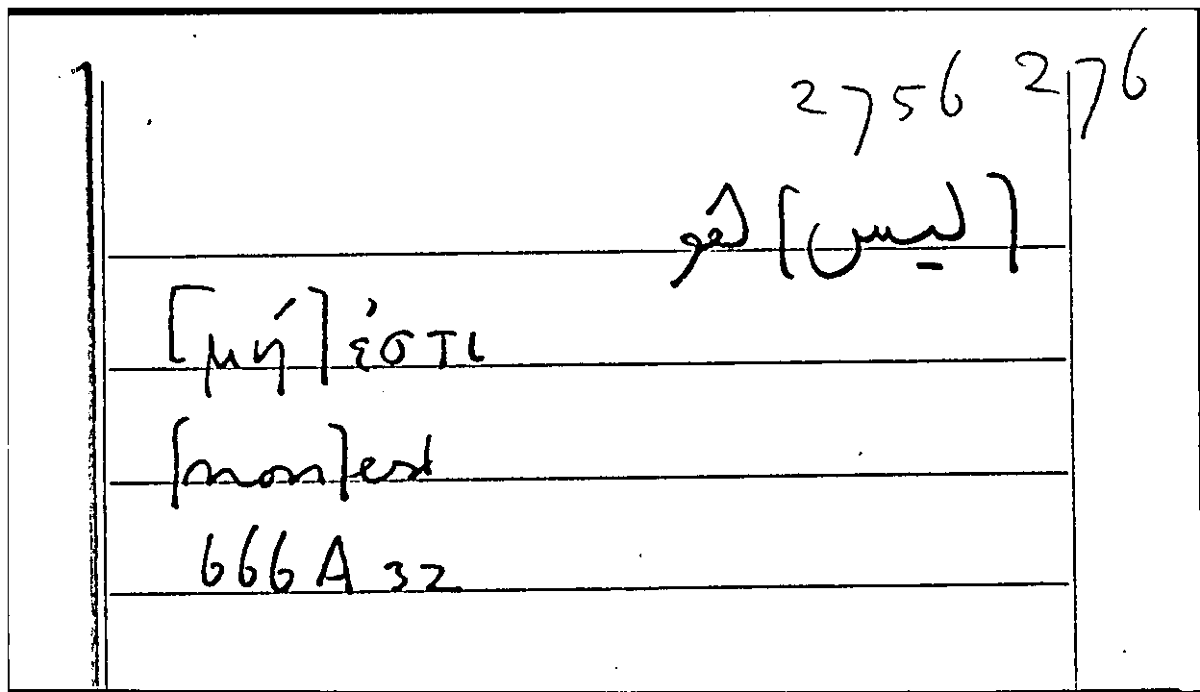 2756 276
[ليس] هو
[μή] ἐστι
[non] est
666 A 32